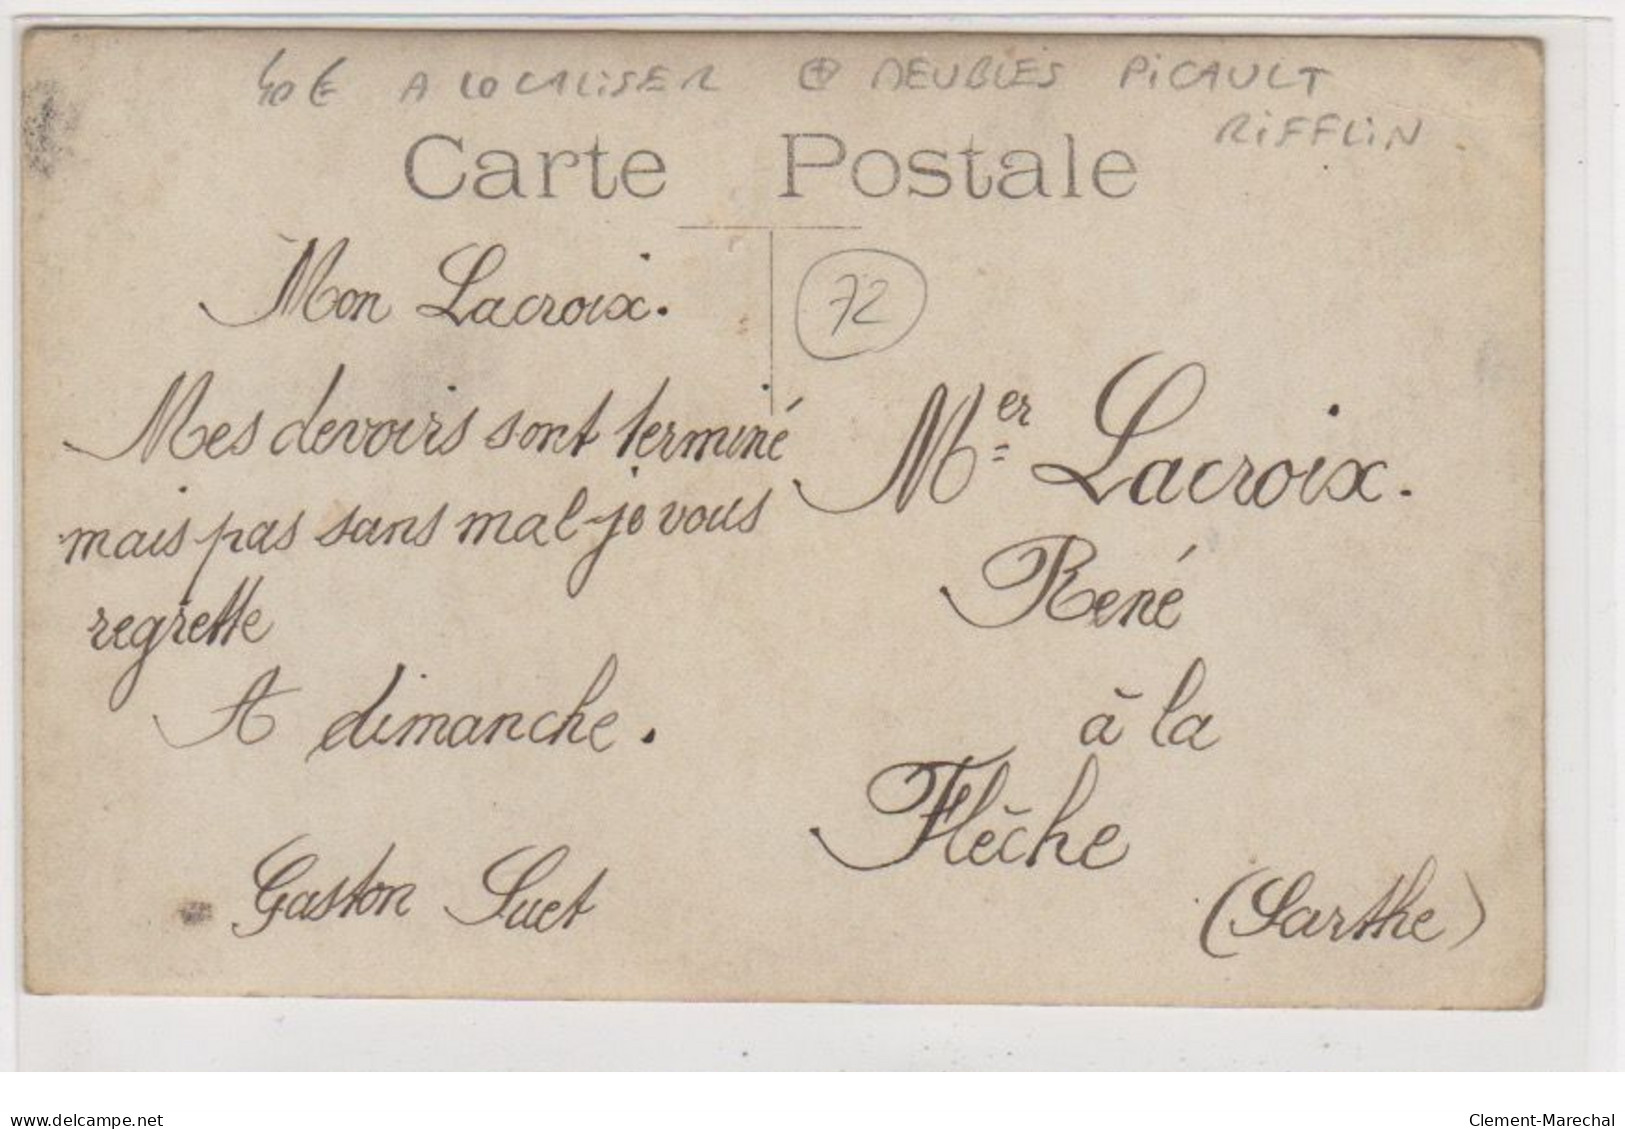 40€ A LOCALISER ⊕ MEUBLES PICAULT
RIFFLIN
Carte Postale
72
Mon Lacroix.
Mes devoirs sont terminé
mais pas sans mal je vous
regrette
A dimanche.
Gaston Suet
Mer Lacroix.
René
à la
Flèche
(Sarthe)
www.delcampe.net
Clement-Marechal